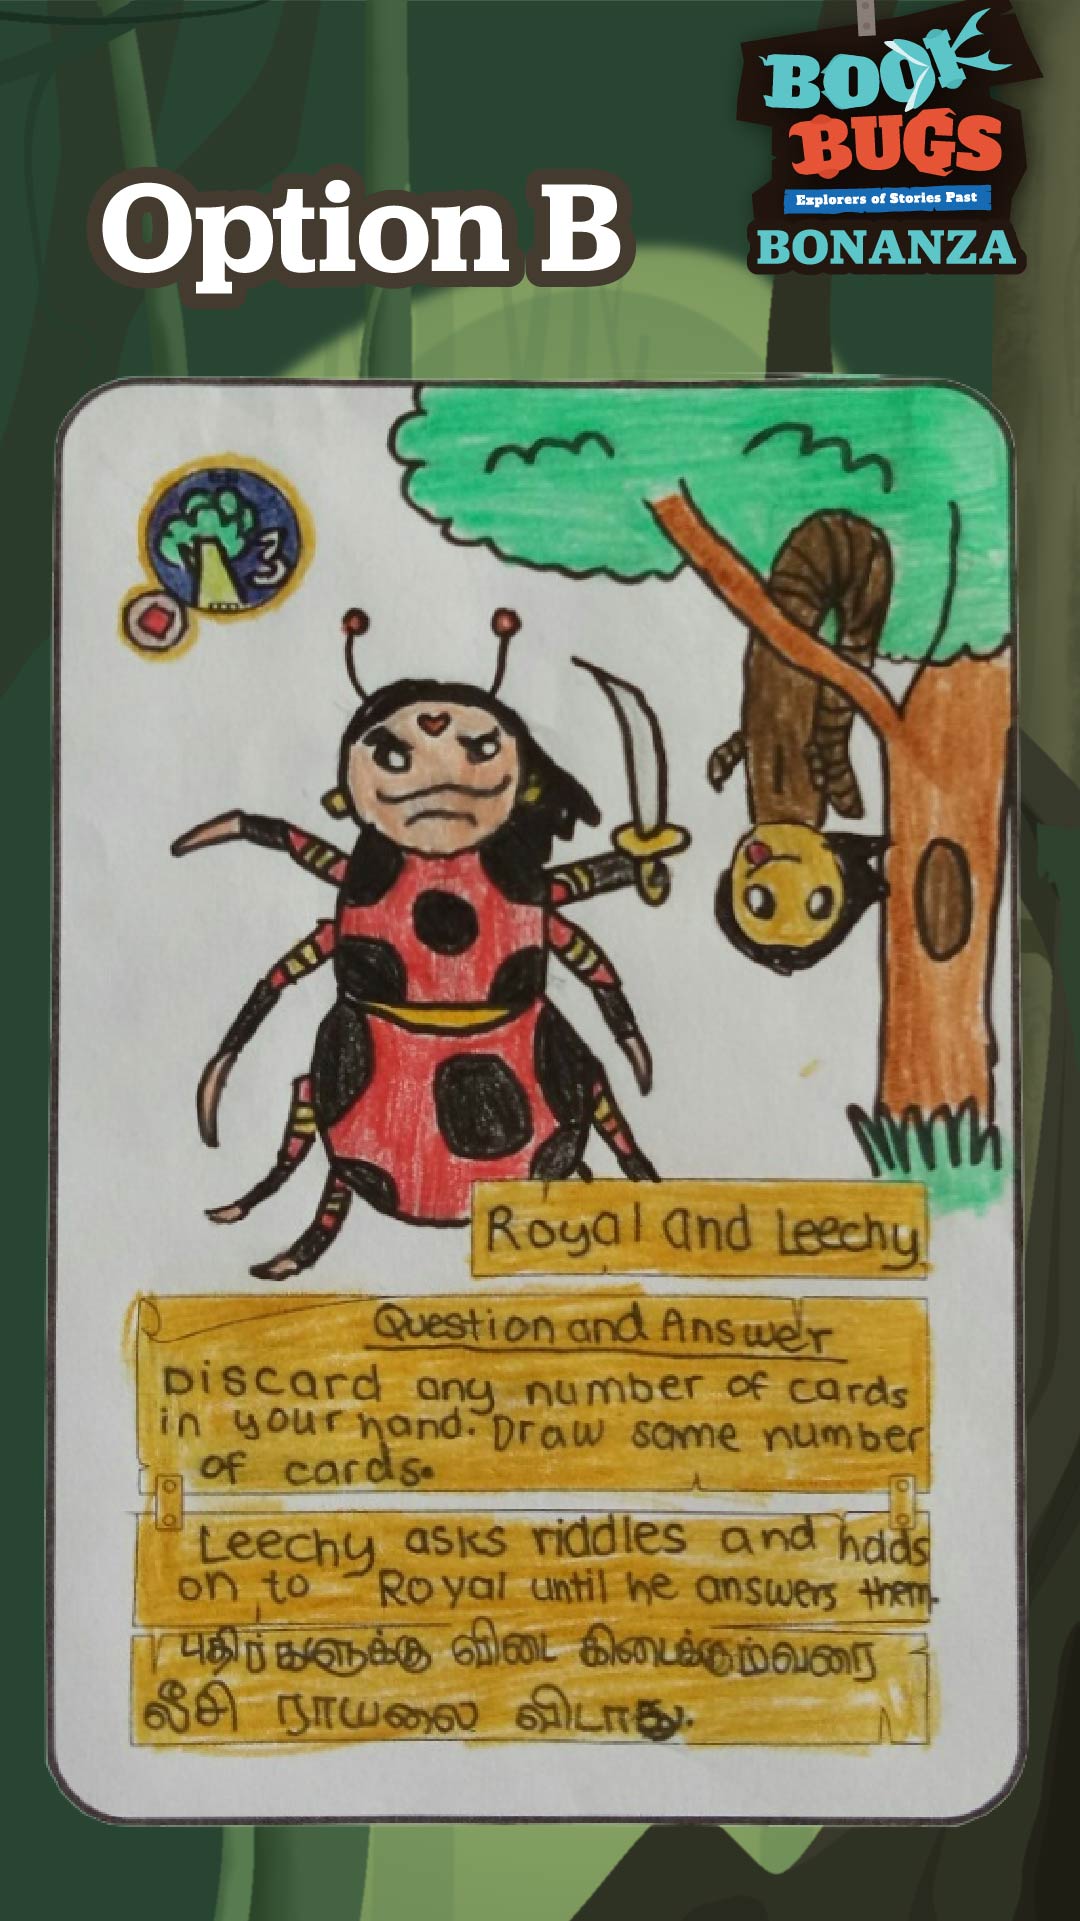 BOOK
BUGS
Explorers of Stories Past
BONANZA
Option B
3
Royal and Leechy
Question and Answer
Discard any number of cards
in your hand. Draw same number
of cards.
Leechy asks riddles and holds
on to Royal until he answers them.
புதிர்களுக்கு விடை கிடைக்கும்வரை
லீசி ராயலை விடாது.